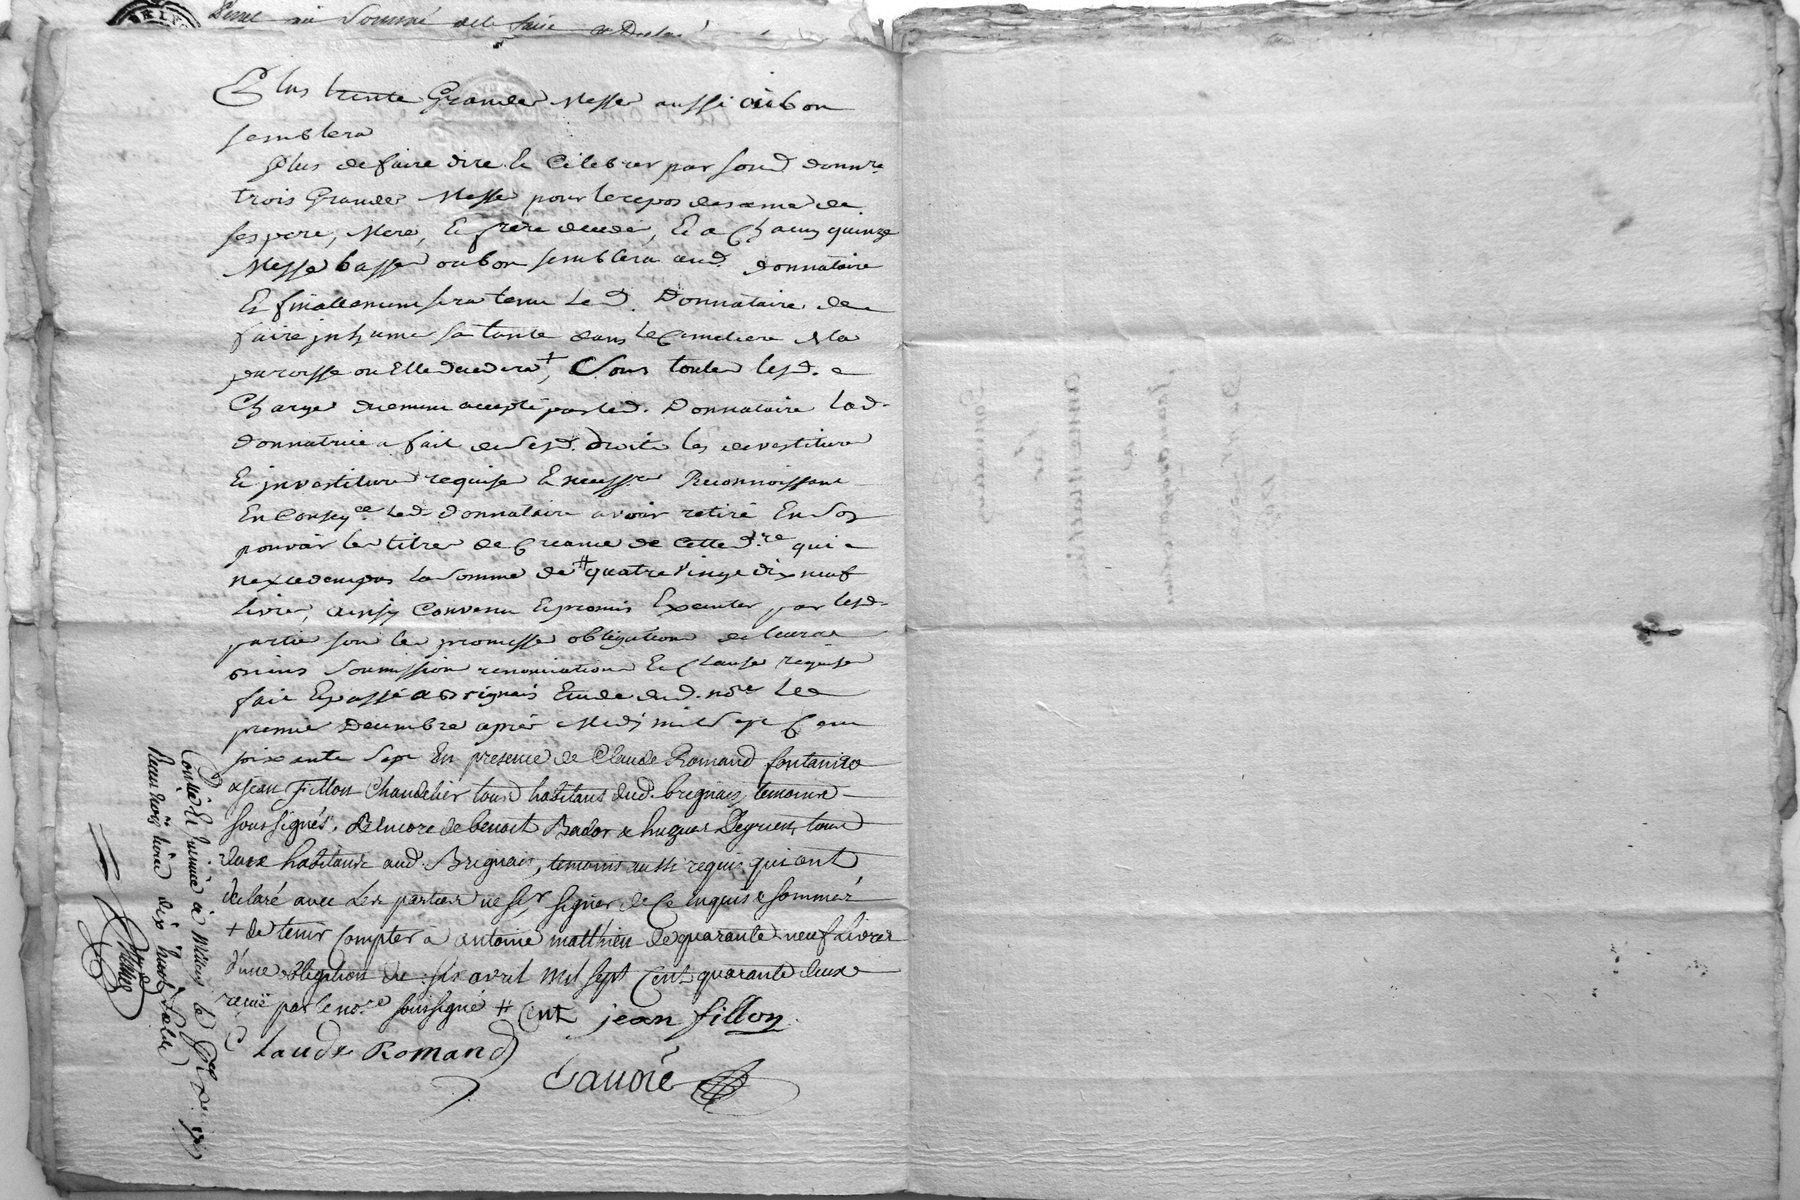 Plus trente Grandes Messes aussi où bon
semblera
Plus de faire dire et Célébrer par sond. donnre
trois Grandes Messes pour le repos des ame de
ses pere, Mere, et frere decedés, et a Chacun quinze
Messes basses ou bon semblera aud. donnataire
et finallement sera tenu led. Donnataire de
faire inhumer sa tante dans le Cimetiere de la
paroisse ou Elle decedera +, Sous toutes lesd.
Charges duement accepté par led. Donnataire lad.
donnatrice a fait de sesd. droits les devestitures
et investitures requises et necessres Reconnoissant
En Conseqce led. donnataire avoir retiré En son
pouvoir les titres de Creance de cette dre qui
n'excedent pas la somme de # quatre vingt dix neuf
livres, ainsy Convenu et promis Executer par lesd.
parties sous les promesses obligations de leurs
biens soumissions renonciations et Clauses requises
fait et passé a Brignais Etude dud. nore le
premier Decembre après Midy mil sept Cent
soixante sept En presence de Claude Romand fontanier
& jean Fillon Chandelier tous habitans dud. brignais, temoins
soussignés, & encore de benoit Bador & hugues Deyrieu, tous
deux habitants aud. Brignais, temoins aussi requis qui ont
declaré avec les parties ne sçr signer de Ce enquis & sommés
+ de tenir Compter à antoine matthieu de quarante neuf livres
d'une obligation du six avril mil sept Cent quarante deux
reçue par le nore. soussigné # Cent jean fillon
Claude Romand
Daudré
Contlé et insinué à
Reçu trois livres dix huit sols
Perret ni Sommé